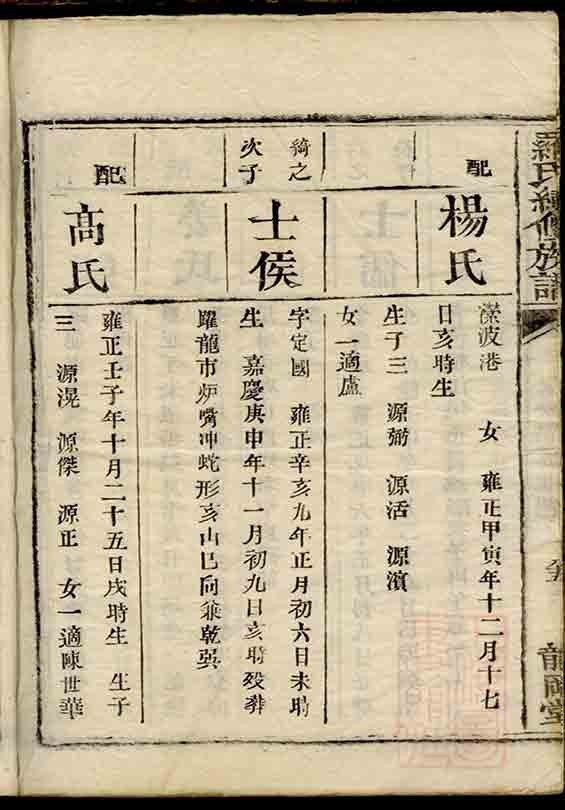 羅氏續修族譜
龍岡堂
配
楊氏
深波港 女 雍正甲寅年十二月十七
日亥時生
生子三 源瀰 源活 源濱
女一適盧
綺之
次子
士侯
字定國 雍正辛亥九年正月初六日未時
生 嘉慶庚申年十一月初九日亥時歿葬
躍龍市炉嘴冲蛇形亥山巳向兼乾巽
配
高氏
雍正壬子年十月二十五日戌時生 生子
三 源滉 源傑 源正 女一適陳世華